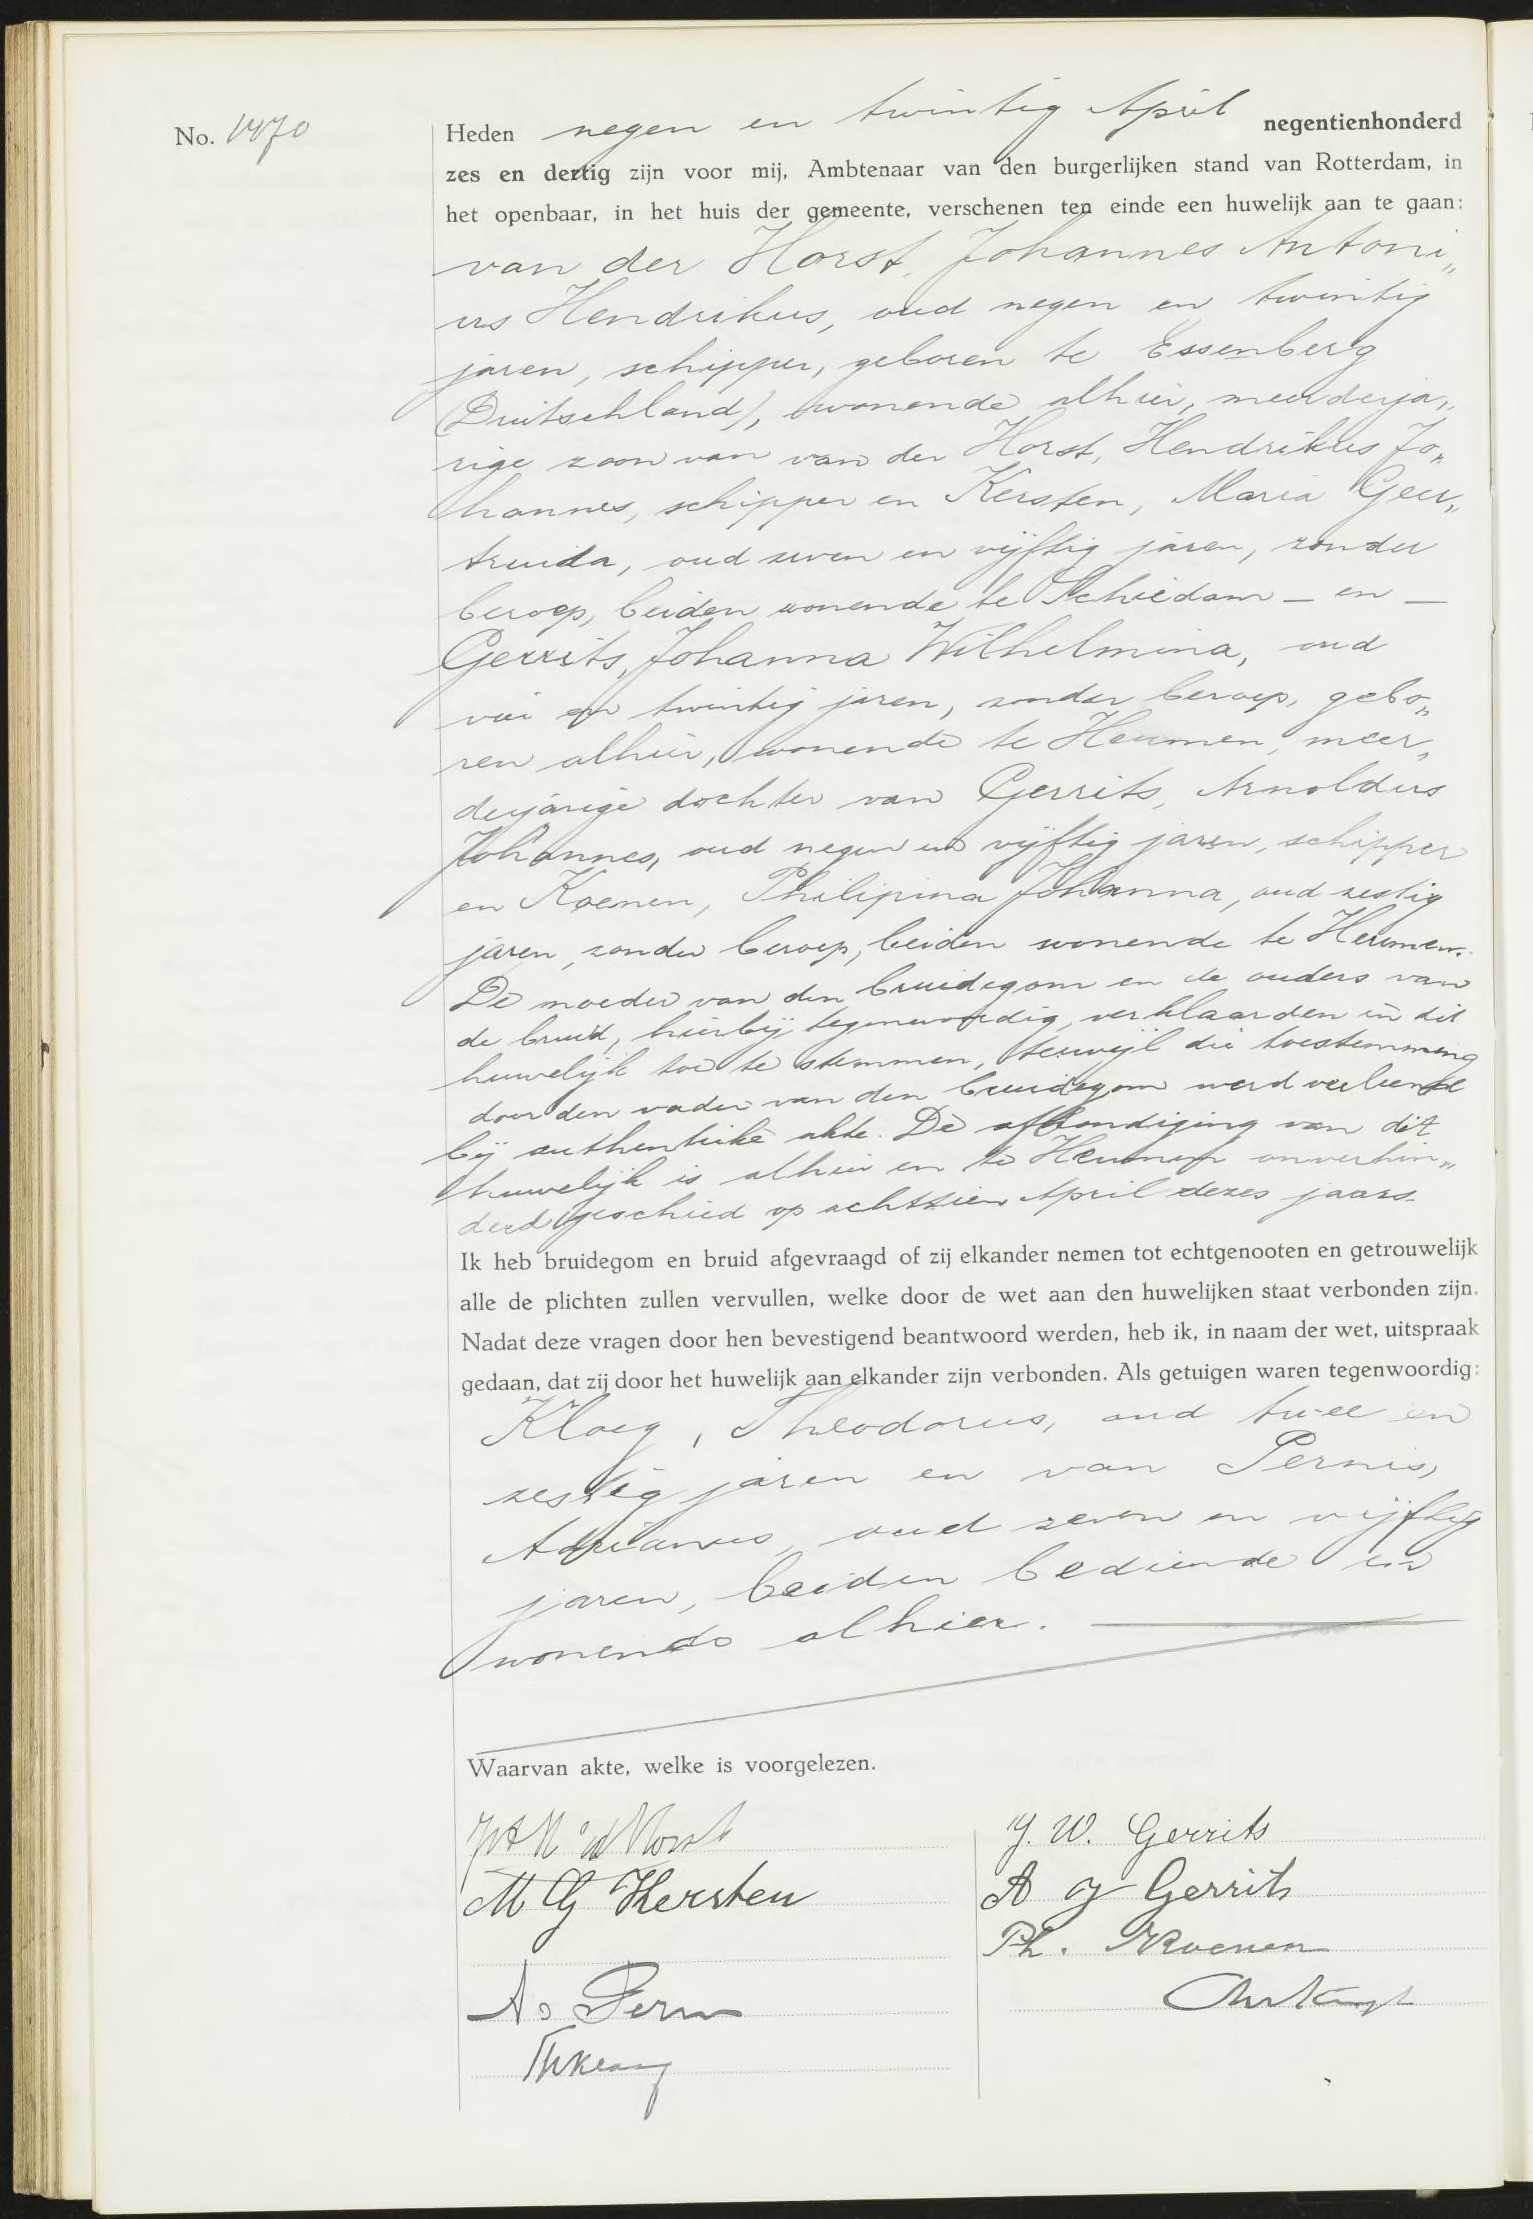 No. 1470
Heden negen en twintig April negentienhonderd
zes en dertig zijn voor mij, Ambtenaar van den burgerlijken stand van Rotterdam, in
het openbaar, in het huis der gemeente, verschenen ten einde een huwelijk aan te gaan:
van der Horst, Johannes Antoni„
us Hendrikus, oud negen en twintig
jaren, schipper, geboren te Essenberg
(Duitschland), wonende alhier, meerderja„
rige zoon van van der Horst, Hendrikus Jo„
hannes, schipper en Kersten, Maria Geer„
truida, oud zeven en vijftig jaren, zonder
beroep, beiden wonende te Schiedam - en -
Gerrits, Johanna Wilhelmina, oud
vier en twintig jaren, zonder beroep, gebo„
ren alhier, wonende te Heumen, meer„
derjarige dochter van Gerrits, Arnoldus
Johannes, oud negen en vijftig jaren, schipper
en Koenen, Philipina Johanna, oud zestig
jaren, zonder beroep, beiden wonende te Heumen.
De moeder van den bruidegom en de ouders van
de bruid, hierbij tegenwoordig, verklaarden in dit
huwelijk toe te stemmen, terwijl die toestemming
door den vader van den bruidegom werd verleend
bij authentieke akte. De afkondiging van dit
huwelijk is alhier en te Heumen onverhin„
derd geschied op achttien April dezes jaars.
Ik heb bruidegom en bruid afgevraagd of zij elkander nemen tot echtgenooten en getrouwelijk
alle de plichten zullen vervullen, welke door de wet aan den huwelijken staat verbonden zijn.
Nadat deze vragen door hen bevestigend beantwoord werden, heb ik, in naam der wet, uitspraak
gedaan, dat zij door het huwelijk aan elkander zijn verbonden. Als getuigen waren tegenwoordig:
Kloeg, Theodorus, oud twee en
zestig jaren en van Pernis,
Adrianus, oud zeven en vijftig
jaren, beiden bediende en
wonende alhier.
Waarvan akte, welke is voorgelezen.
J A H v d Horst
J. W. Gerrits
M G Kersten
A J Gerrits
Ph. Koenen